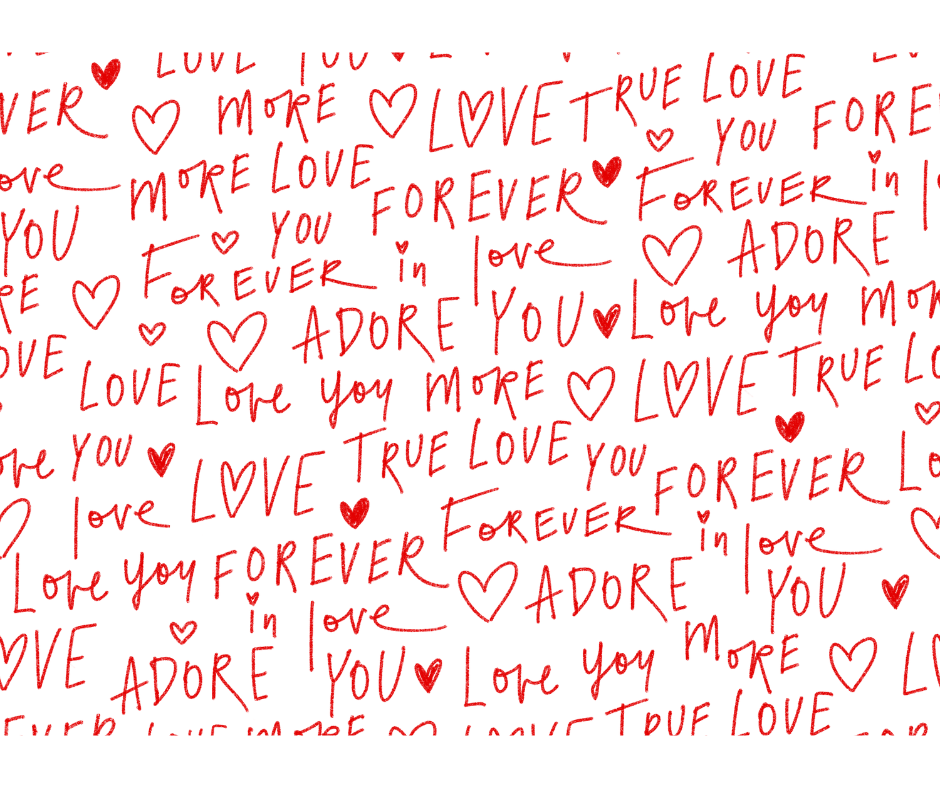 LOVE YOU
EVER MORE LOVE TRUE LOVE
love MORE LOVE YOU FOREVER
YOU YOU FOREVER FOREVER in
RE FOREVER in love ADORE
OVE ADORE YOU Love you MORE
LOVE Love you MORE LOVE TRUE LO
ove YOU LOVE TRUE LOVE YOU FOREVER Lo
love FOREVER in love
Love you FOREVER ADORE YOU
OVE in love
ADORE YOU Love you MORE LO
EVER LOVE MORE LOVE TRUE LOVE